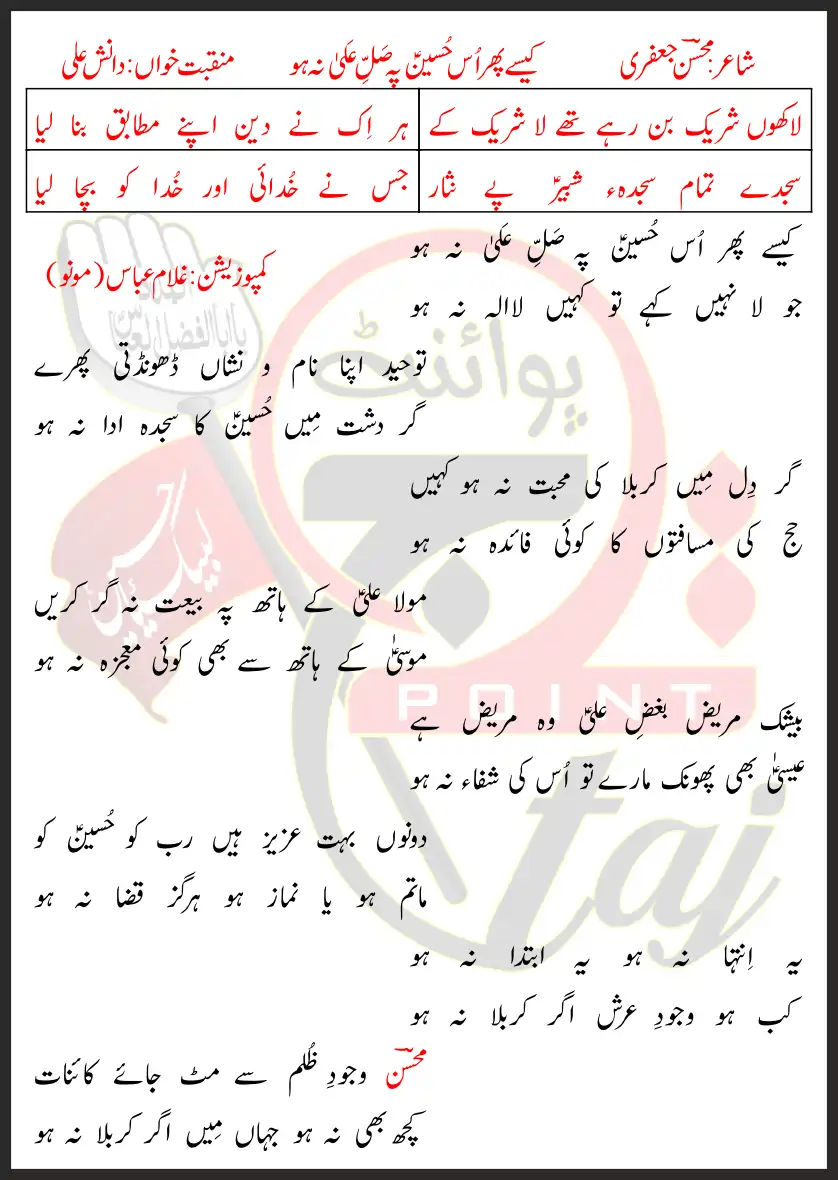 شاعر: محسنؔ جعفری کیسے پھر اُس حُسینؑ پہ صَلِّ عَلیٰ نہ ہو منقبت خواں: دانش علی
لاکھوں شریک بن رہے تھے لا شریک کے ہر اِک نے دین اپنے مطابق بنا لیا
سجدے تمام سجدہء شبیرؑ پے نثار جس نے خُدائی اور خُدا کو بچا لیا
کیسے پھر اُس حُسینؑ پہ صَلِّ عَلیٰ نہ ہو
کمپوزیشن: غلام عباس (مونو)
جو لا نہیں کہے تو کہیں لاالہ نہ ہو
توحید اپنا نام و نشاں ڈھونڈتی پھرے
گر دشت مِیں حُسینؑ کا سجدہ ادا نہ ہو
گر دِل مِیں کربلا کی محبت نہ ہو کہیں
حج کی مسافتوں کا کوئی فائدہ نہ ہو
مولا علیؑ کے ہاتھ پہ بیعت نہ گر کریں
موسیٰؑ کے ہاتھ سے بھی کوئی معجزہ نہ ہو
بیشک مریض بغضِ علیؑ وہ مریض ہے
عیسیٰؑ بھی پھونک مارے تو اُس کی شفاء نہ ہو
دونوں بہت عزیز ہیں رب کو حُسینؑ کو
ماتم ہو یا نماز ہو ہرگز قضا نہ ہو
یہ اِنتہا نہ ہو یہ ابتدا نہ ہو
کب ہو وجودِ عرش اگر کربلا نہ ہو
محسنؔ وجودِ ظُلم سے مٹ جائے کائنات
کچھ بھی نہ ہو جہاں مِیں اگر کربلا نہ ہو
پوائنٹ
POINT
taj
لبیک یا حسینؑ